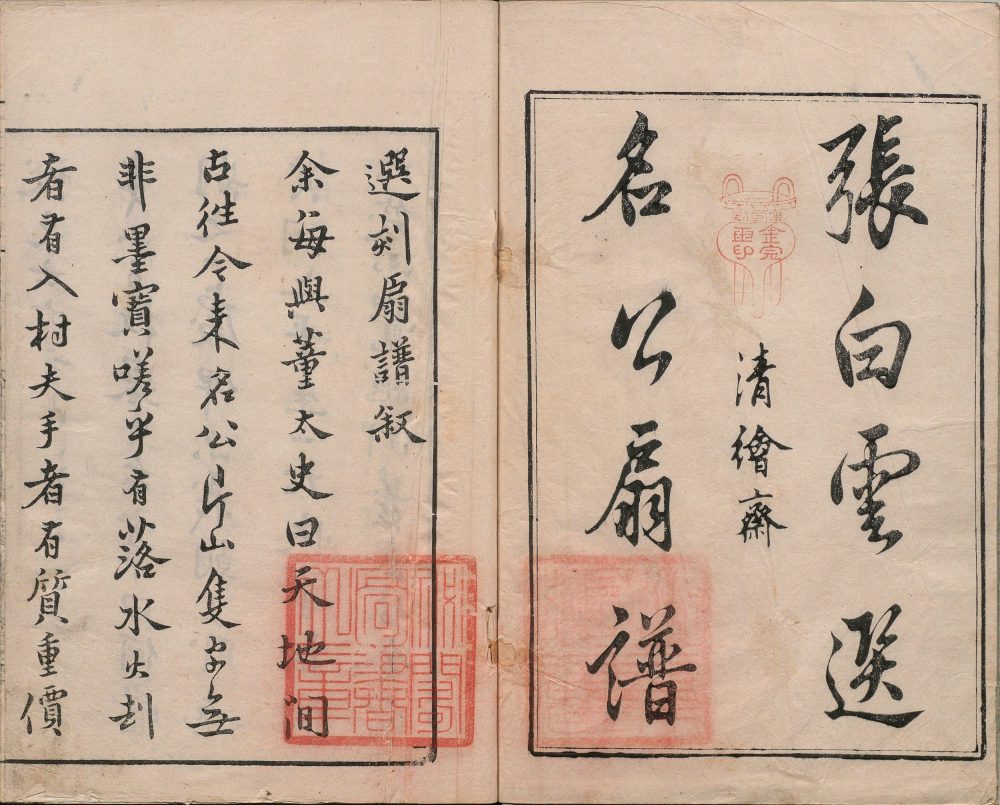 張白雲選
名公扇譜
清繪齋
選刻扇譜敘
余每與董太史曰天地間
古徃今来名公片山隻字無
非墨寶嗟乎有落水火刦
者有入村夫手者有質重價